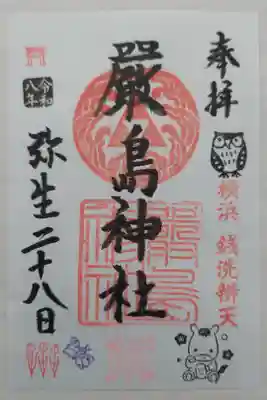 奉拝
横浜 銭洗辨天
嚴島神社
令和
八年
弥生二十八日